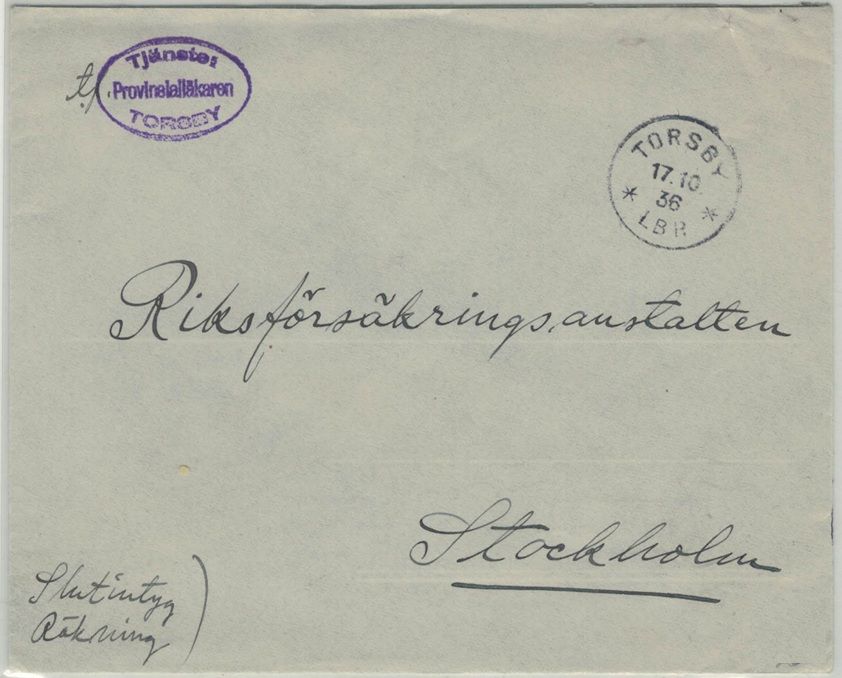 Tjänste:
Provinsialläkaren
TORSBY
TORSBY
17.10.
36
* LBR *
Riksförsäkringsanstalten
Stockholm
Slutintyg
Räkning )